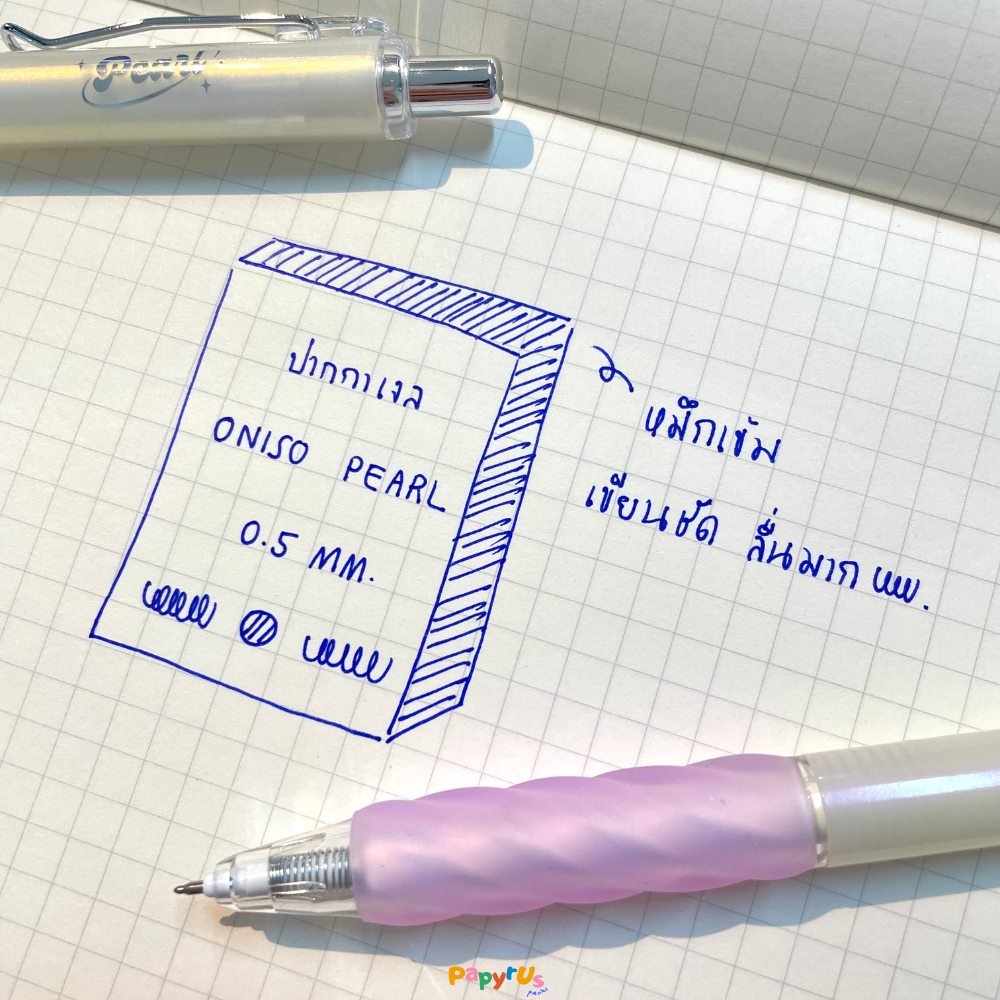 Pearl
ปากกาเจล
ONISO PEARL
0.5 MM.
หมึกเข้ม
เขียนชัด ลื่นมาก แพ.
PapyrUs
peaks